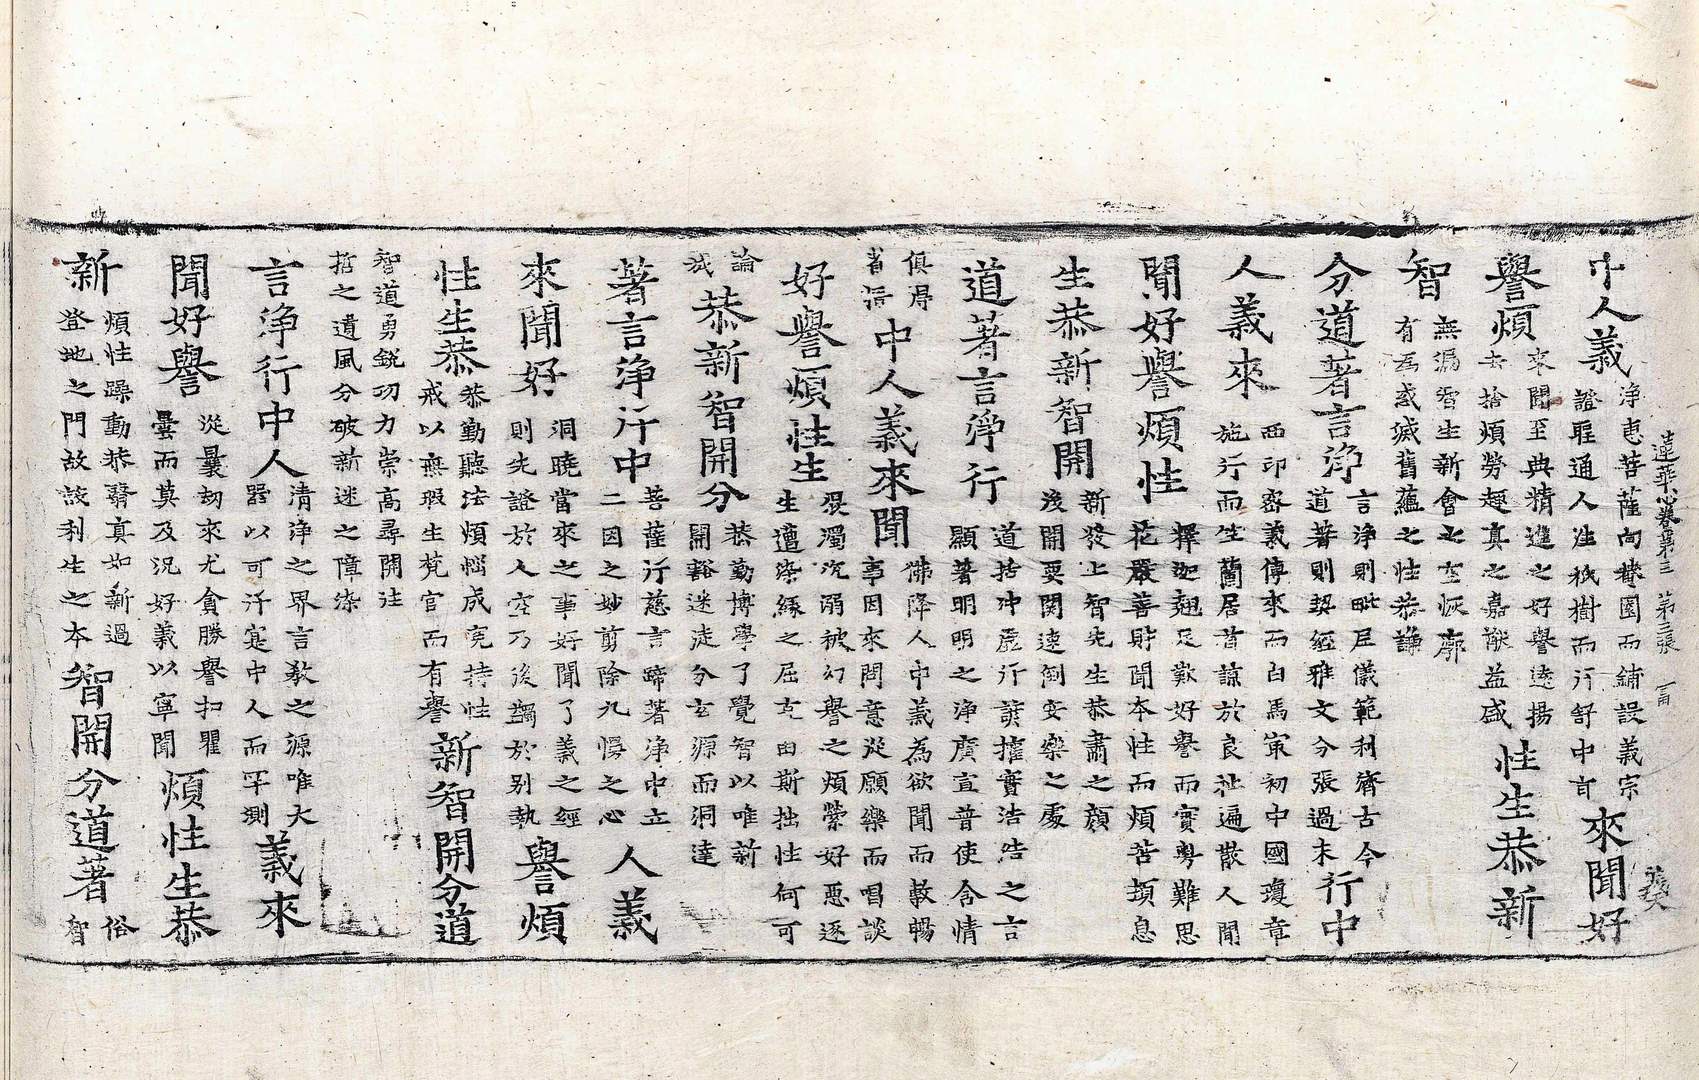 蓮華心卷第三 第三張 言
中人義
淨惠菩薩向㯽園而鋪設義宗
證聖通人注祇樹而行舒中言
來聞好
譽煩
來聞至典精進之好譽遠揚
去捨煩勞趣真之嘉猷益盛
性生恭新
智
無漏智生新會之玄恢廓
有為惑滅舊蘊之性恭謙
分道著言淨
言淨則毗尼儀範利齊古今
道著則契經雅文分張過未
行中
人義來
西印密義傳來而白馬㝡初中國瓊章
施行而生蘭居首諒於良祉遍散人聞
聞好譽煩性
釋迦翹足歎好譽而實粤難思
花嚴善財聞本性而煩苦頓息
生恭新智開
新發上智先生恭肅之顏
後開要関遠倒安樂之處
道著言淨行
道括沖虛行謨權實浩浩之言
顯著明明之淨廣宣普使含情
俱得
省諸
中人義來聞
佛降人中義為欲聞而敷暢
事因來問意從願樂而唱談
好譽煩性生
濁沉溺被幻譽之煩縈好惡逐
生遭染緣之屈克由斯拙性何可
論
哉
恭新智開分
恭勤博學了覺智以唯新
開豁迷徒分玄源而洞達
著言淨行中
菩薩行慈言諦著淨中立
二因之妙剪除九慢之心
人義
來聞好
洞曉當來之事好聞了義之經
則先證於人空乃後蠲於別執
譽煩
性生恭
恭勤聽法煩惱成究持性
戒以無瑕生梵官而有譽
新智開分道
智道勇銳功力崇高尋開往
哲之遺風分破新迷之障染
言淨行中人
清淨之界言教之源唯大
器以可行寔中人而罕測
義來
聞好譽
從曩劫來尤貪勝譽扣瞿
曇而莫及況好義以寧聞
煩性生恭
新
煩性躁動恭翳真如新過
登地之門故談利生之本
智開分道著
俗
智